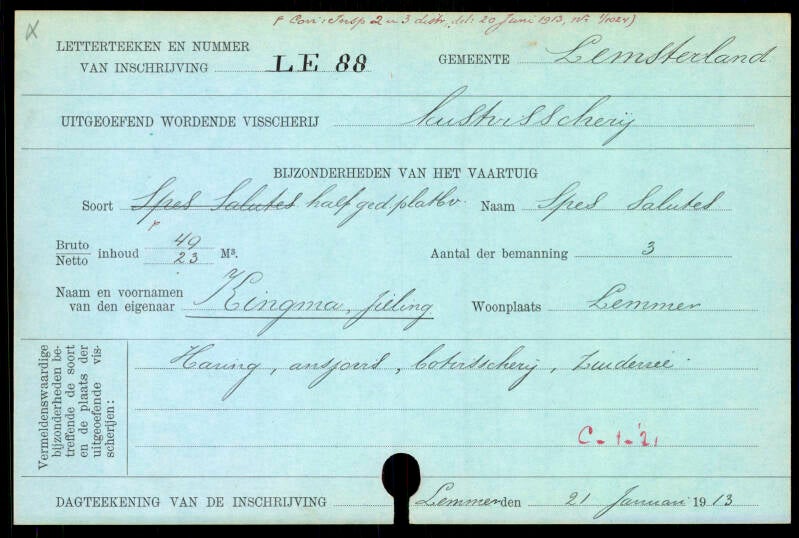 Corr: Insp 2 u 3 distr. dd: 20 Juni 1913, No 1/1024)
LETTERTEEKEN EN NUMMER
VAN INSCHRIJVING LE 88 GEMEENTE Lemsterland
UITGEOEFEND WORDENDE VISSCHERIJ kustvisscherij
BIJZONDERHEDEN VAN HET VAARTUIG
Soort Spes Salutes half ged platbv. Naam Spes Salutes
Bruto 49
Netto inhoud 23 M³. Aantal der bemanning 3
Naam en voornamen
van den eigenaar Kingma, Jieling Woonplaats Lemmer
Vermeldenswaardige
bijzonderheden be-
treffende de soort
en de plaats der
uitgeoefende vis-
scherijen:
Haring, ansjovis, botvisscherij, Zuiderzee.
C-1-'21
DAGTEEKENING VAN DE INSCHRIJVING Lemmer den 21 Januari 1913